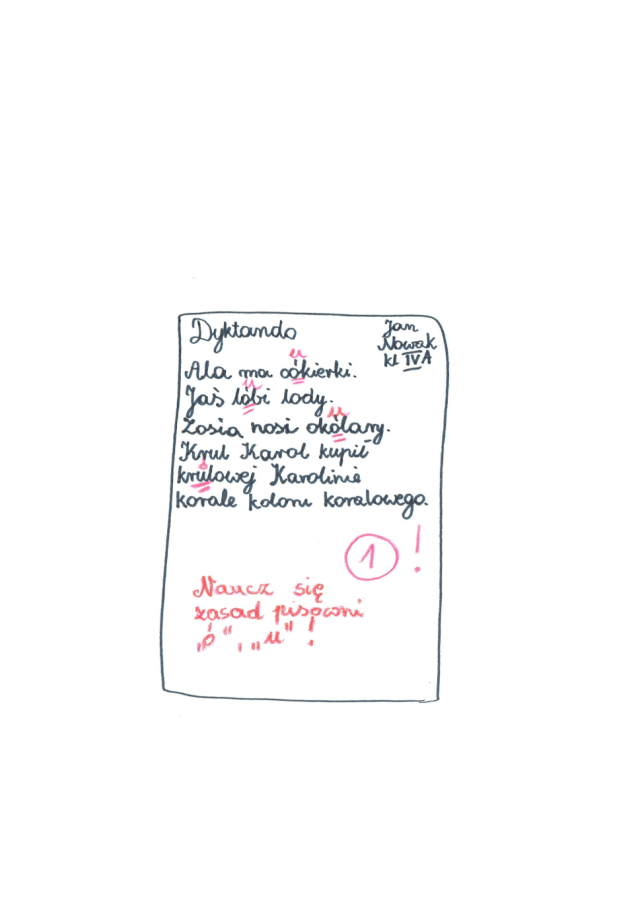 Dyktando
Jan
Nowak
kl IVA
u
Ala ma cókierki.
u
Jaś lóbi lody.
u
Zosia nosi okólary.
Krul Karol kupił
ó
krulowej Karolinie
korale koloru koralowego.
1 !
Naucz się
zasad pisowni
„ó", „u" !